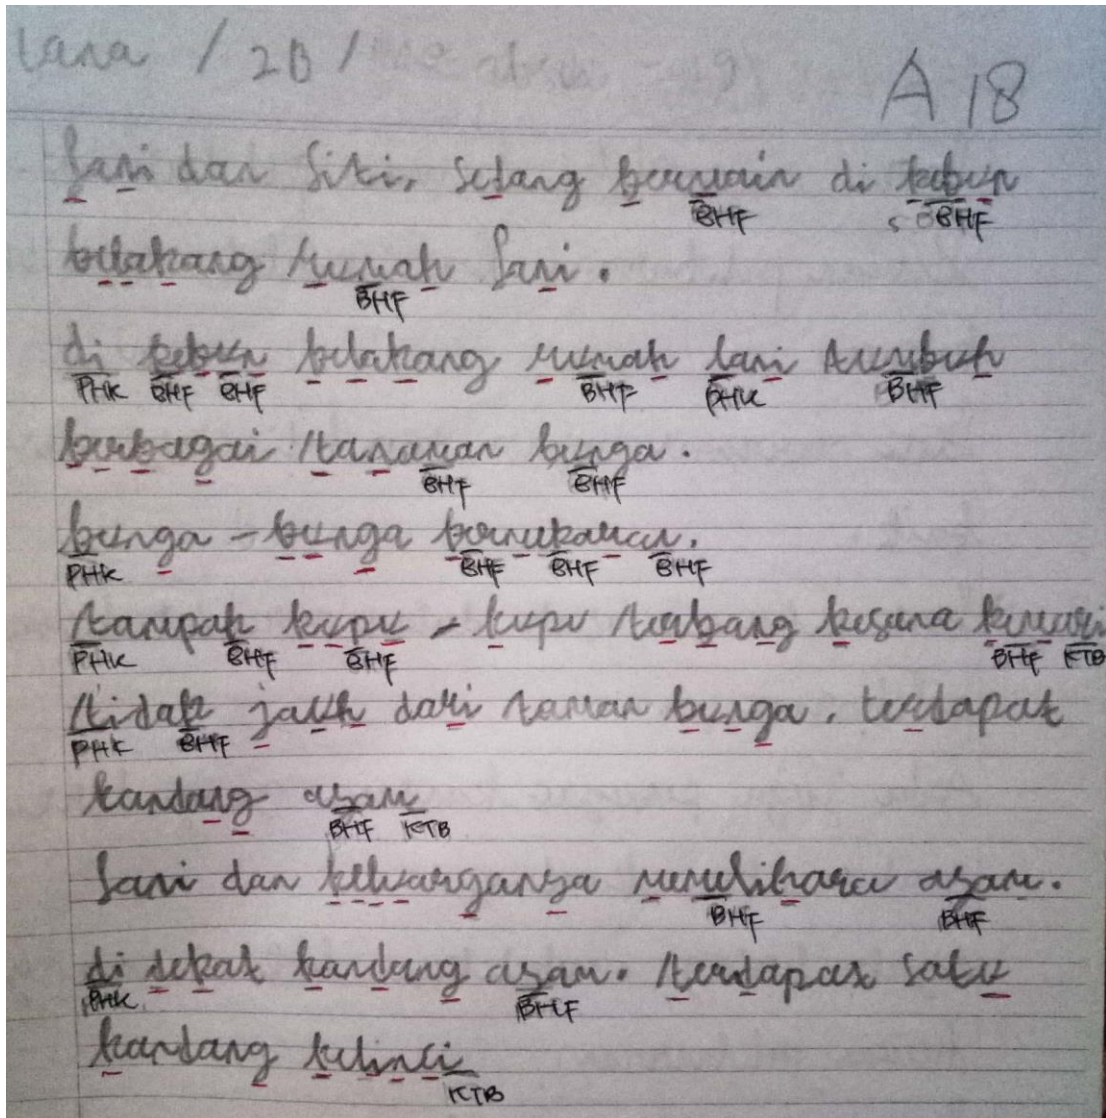 lana / 2B /
A 18
Sani dan Siti, sedang bermain di kebun
BHF BHF
belakang rumah Sani.
BHF
di kebun belakang rumah Sani tumbuh
PHK BHF BHF BHF PHK BHF
berbagai tanaman bunga.
BHF BHF
bunga - bunga bermekaran.
PHK BHF BHF BHF
tampak kupu - kupu terbang kesana kemari
PHK BHF BHF BHF KTB
tidak jauh dari taman bunga. terdapat
PHK BHF
kandang ayam
BHF KTB
Sani dan keluarganya memelihara ayam.
BHF BHF
di dekat kandang ayam. terdapat satu
PHK BHF
kandang kelinci
KTB